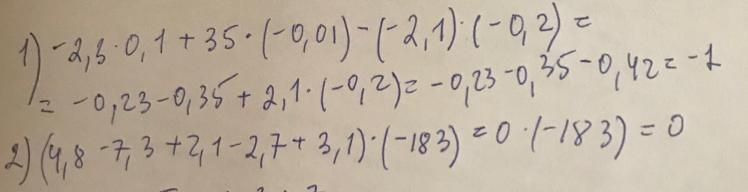 1) -2,3·0,1+35·(-0,01)-(-2,1)·(-0,2)=
= -0,23-0,35+2,1·(-0,2)= -0,23-0,35-0,42= -1
2) (4,8-7,3+2,1-2,7+3,1)·(-183)=0·(-183)=0